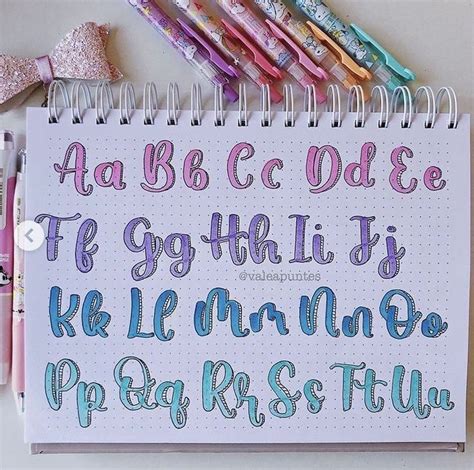 Aa Bb Cc Dd Ee
Ff Gg Hh Ii Jj
@valeapuntes
Kk Ll Mm Nn Oo
Pp Qq Rr Ss Tt Uu